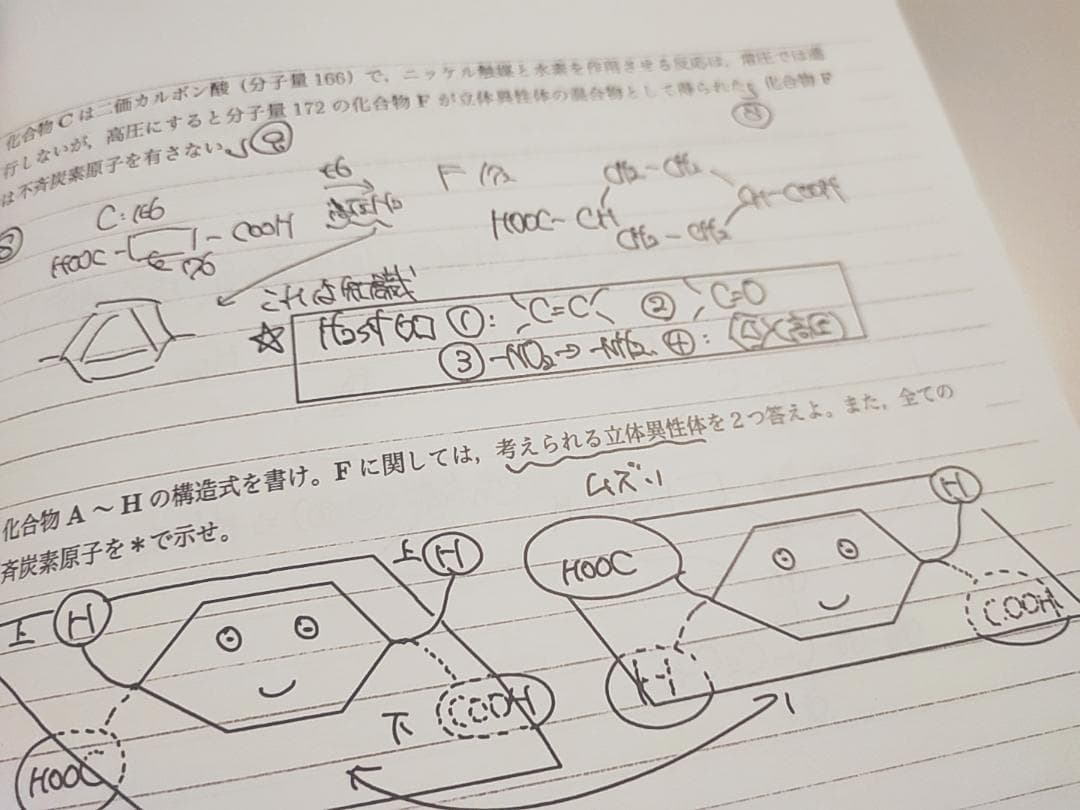 化合物Cは二価カルボン酸（分子量166）で，ニッケル触媒と水素を作用させる反応は，常圧では進
行しないが，高圧にすると分子量172の化合物Fが立体異性体の混合物として得られた。化合物F
は不斉炭素原子を有さない。
⑧
⑧
C:166
+6
F 172
HOOC- -COOH
76
高圧H₂
CH₂-CH₂
HOOC-CH CH-COOH
CH₂-CH₂
これは知識
☆ H₂付加 ①: C=C ② C=O
③-NO₂→-NH₂. ④: (高圧)
化合物A～Hの構造式を書け。Fに関しては，考えられる立体異性体を2つ答えよ。また，全ての
斉炭素原子を＊で示せ。
ムズい
上 H
上 H
HOOC
下 COOH
H
HOOC
H
COOH